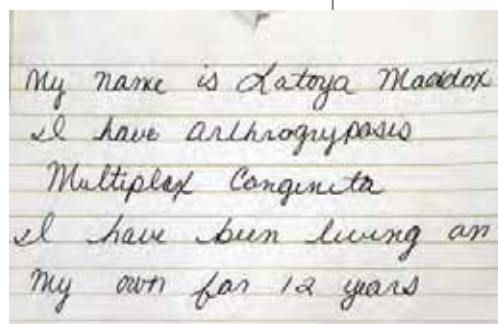 My name is Latoya Maddox
I have arthrogryposis
Multiplex Congenita
I have been living on
My own for 12 years